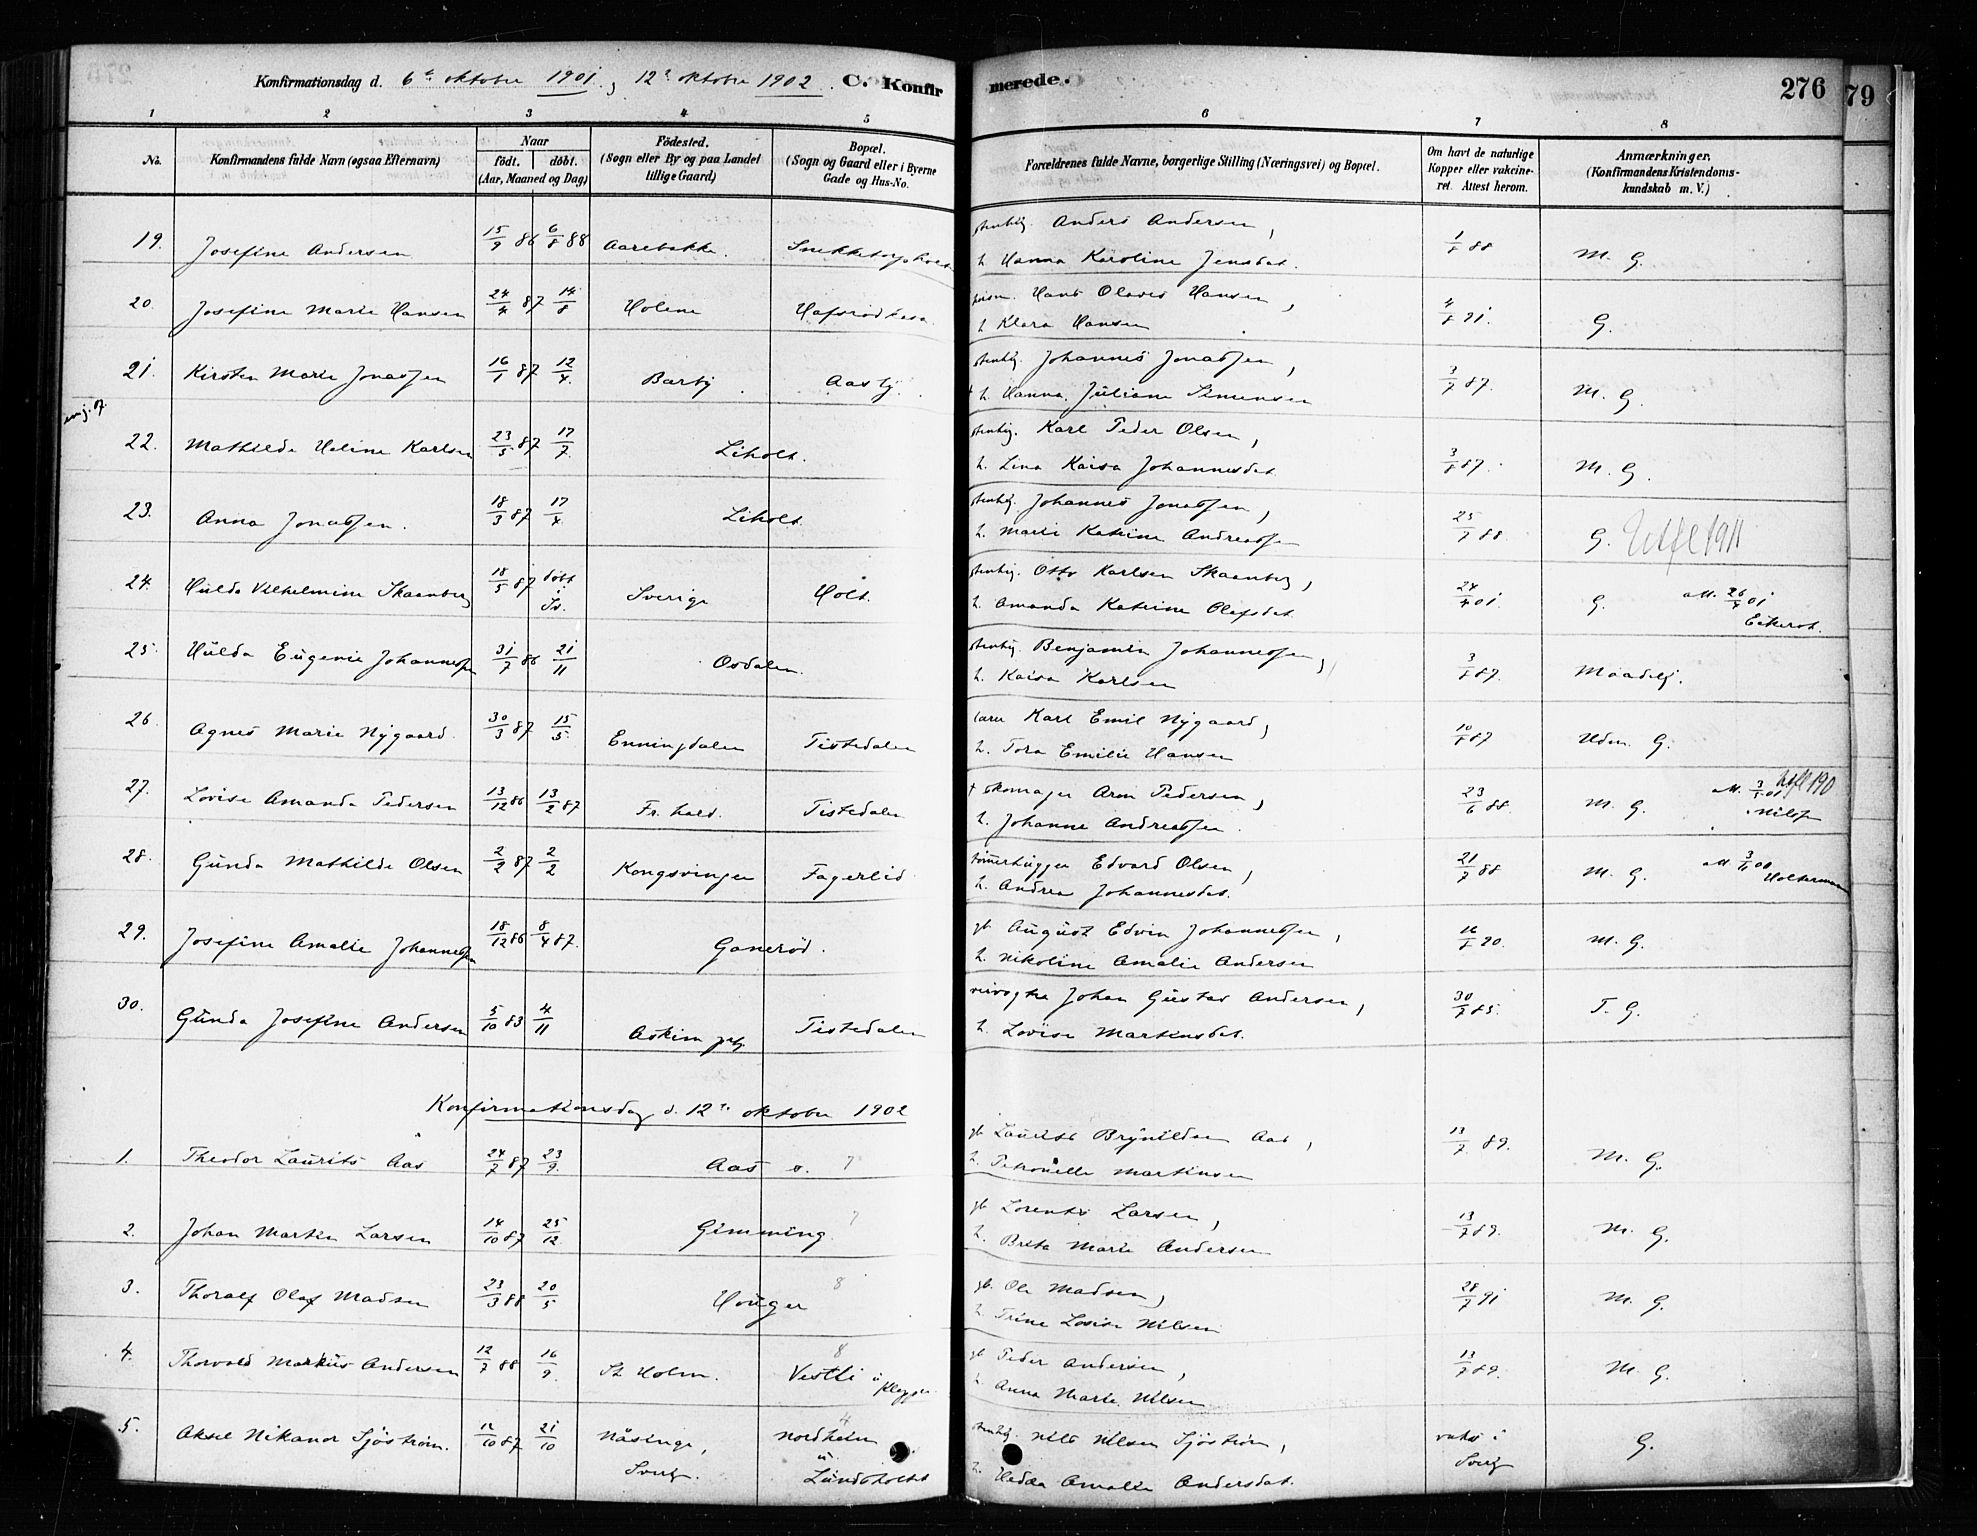 Konfirmationsdag d. 6te oktober 1901, 12te oktober 1902. C. Konfirmerede. 276
79
1 2 3 4 5 6 7 8
No. Konfirmandens fulde Navn (ogsaa Efternavn) Naar født. døbt. (Aar, Maaned og Dag) Fødested. (Sogn eller By og paa Landet tillige Gaard) Bopæl. (Sogn og Gaard eller i Byerne Gade og Hus-No. Forældrenes fulde Navne, borgerlige Stilling (Næringsvei) og Bopæl. Om havt de naturlige Kopper eller vakcineret. Attest herom. Anmærkninger. (Konfirmandens Kristendomskundskab m. V.)
19. Josefine Andersen 15/9 86 6/8 88 Aarebakke. Anders Andersen,
h. Hanna Karoline Jensdat. 1/8 88 M. G.
20. Josefine Marie Hansen 24/4 87 14/8 Holene Hans Olaves Hansen,
h. Klara Hansen 4/8 91. G.
21. Kirsten Marie Jonassen 16/1 87 12/4. Barby Aasby. stenhug. Johannes Jonassen,
† h. Hanna Juliane Simensen 3/7 87. M. G.
22. Mathilde Heline Karlsen 23/5 87 17/7. Liholt. stenhug. Karl Peder Olsen,
h. Lina Kaisa Johannesdat. 3/8 87. M. G.
23. Anna Jonassen. 18/3 87 17/4. Liholt. stenhug. Johannes Jonassen,
h. Marie Katrine Andreassen 25/7 88. G. Utfl 1911
24. Hulda Vilhelmine Skaanberg 18/5 87 døbt i Sv. Sverige Holt. stenhug. Otto Karlsen Skaanberg,
h. Amanda Katrine Olafsdat. 24/4 01. G. att. 26/4 01
25. Hulda Eugenie Johannessen 31/7 86 21/11 Osdalen. stenhug. Benjamin Johannessen,
h. Kaisa Karlsen 3/8 87. Maadelig.
26. Agnes Marie Nygaard. 30/3 87 15/5. Enningdalen Tistedalen Karl Emil Nygaard,
h. Tora Emilie Hansen 10/8 87 Udm. G.
27. Lovise Amanda Pedersen 13/12 86 13/2 87 Fr.hald. Tistedalen † skomager Aron Pedersen,
h. Johanne Andreassen. 23/6 88. M. G.
28. Gunda Mathilde Olsen 2/2 87 2/2 Kongsvinger Fagerlid tømmerhugger Edvard Olsen,
h. Andrea Johannesdat. 21/7 88 M. G.
29. Josefine Amalie Johannessen 18/12 86 8/4 87. Ganerød. gb. August Edvin Johannessen,
h. Nikoline Amalie Andersen 16/8 90. M. G.
30. Gunda Josefine Andersen 5/10 83 4/11 Askim Tistedalen Johan Gustav Andersen,
h. Lovise Martinsdat. 30/7 85. T. G.
Konfirmationsdag d. 12te oktober 1902
1. Theodor Laurits Aas 24/7 87 23/9. Aas ø. 7 gb. Laurits Brynildsen Aas,
h. Petronelle Martinsen 13/7 89. M. G.
2. Johan Martin Larsen 14/10 87 25/12. Gimming 7 gb. Lorents Larsen,
h. Brita Marie Andersen 13/7 89. M. G.
3. Thoralf Olaf Madsen 23/3 88 20/5 Houger 8 gb. Ole Madsen,
h. Trine Lovise Nilsen 28/7 91 M. G.
4. Thorvald Markus Andersen 12/7 88 16/9. St. Holm. Vestli u. 8 gb. Peder Andersen,
h. Anna Marie Nilsen 13/7 89. M. G.
5. Aksel Nikanor Sjöström. 12/10 87 21/10 Näsinge, Sverig. Nordheim u. Lundsholt 4 stenhug. Nils Nilsen Sjöström,
h. Hedda Amalia Andersdat. vaks. i Sverig G.